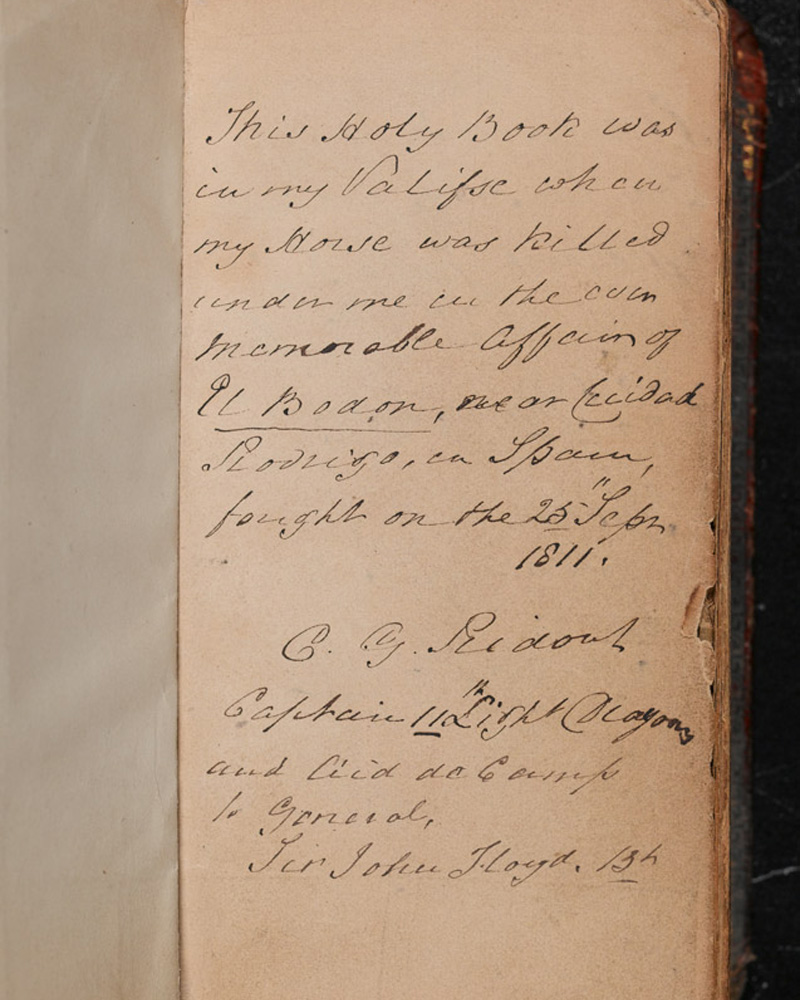 This Holy Book was
in my Valisse when
my Horse was killed
under me in the ever
memorable Affair of
El Bodon, near Ciudad
Rodrigo, in Spain,
fought on the 25" Sepr
1811.
C. G. Ridout
Captain 11th Light Dragons
and Aid de Camp
to General,
Sir John Floyd. Bt